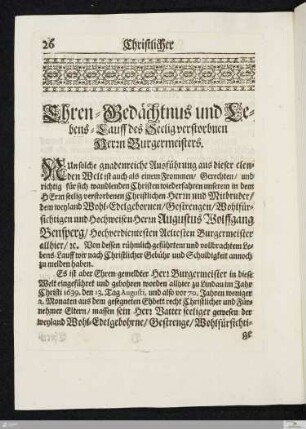 26 Christlicher
Ehren-Gedächtnus und Le-
bens-Lauff des Seelig verstorbnen
Herrn Burgermeisters.
NUn solche gnadenreiche Ausführung aus dieser elen-
den Welt ist auch als einem Frommen/ Gerechten/ und
richtig für sich wandlenden Christen wiederfahren unserm in dem
HErrn seelig verstorbenen Christlichen Herrn und Mitbruder/
dem weyland Wohl-Edelgebornen/ Gestrengen/ Wohlfür-
sichtigen und Hochweisen Herrn Augustus Wolffgang
Bensperg/ Hochverdientesten Aeltesten Burgermeister
allhier/ ꝛc. Von dessen rühmlich geführtem und vollbrachtem Le-
bens-Lauff wir nach Christlicher Gebühr und Schuldigkeit annoch
zu melden haben.
Es ist aber Ehren gemeldter Herr Burgermeister in diese
Welt eingeführet und gebohren worden allhier zu Lindau im Jahr
Christi 1639. den 13. Tag Augusti, und also vor 70. Jahren weniger
2. Monaten aus dem gesegneten Ehbett recht Christlicher und Für-
nehmer Eltern/ massen sein Herr Vatter seeliger gewesen der
weyland Wohl-Edelgebohrne/ Gestrenge/ Wohlfürsichti-
ge